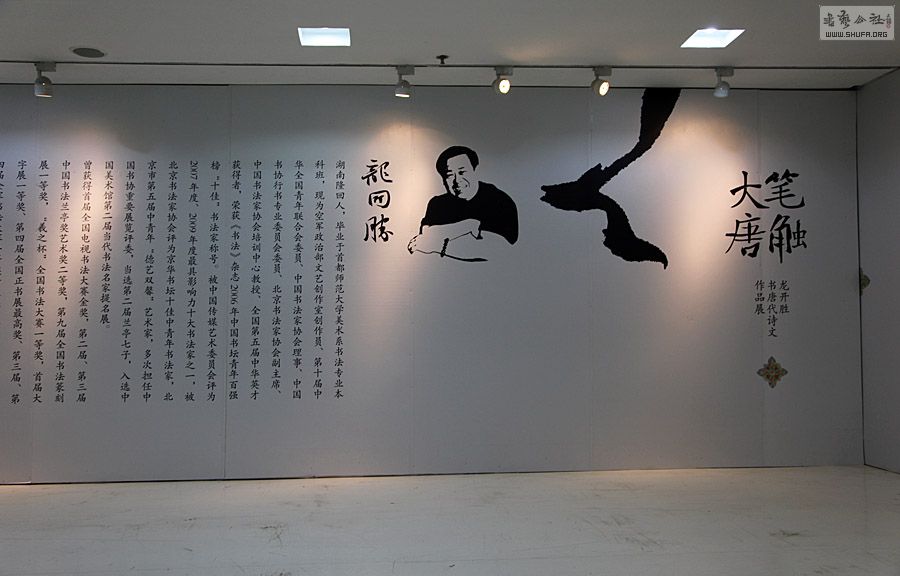 笔触
大唐
龙开胜
书唐代诗文
作品展
龍開勝
湖南隆回人，毕业于首都师范大学美术系书法专业本
科班，现为空军政治部文艺创作室创作员、第十届中
华全国青年联合会委员、中国书法家协会理事、中国
书协行书专业委员会委员、北京书法家协会副主席、
中国书法家协会培训中心教授、全国第五届中华英才
获得者，荣获《书法》杂志2006年中国书坛青年百强
榜“十佳”书法家称号。被中国传媒艺术委员会评为
2007年度、2009年度最具影响力十大书法家之一，被
北京书法家协会评为京华书坛十佳中青年书法家，北
京市第五届中青年“德艺双馨”艺术家，多次担任中
国书协重要展览评委，当选第二届兰亭七子，入选中
国美术馆第二届当代书法名家提名展。
曾获得首届全国电视书法大赛金奖，第二届、第三届
中国书法兰亭奖艺术奖二等奖，第九届全国书法篆刻
展一等奖，“羲之杯”全国书法大赛一等奖，首届大
字展一等奖，第四届全国正书展最高奖，第三届、第
WWW.SHUFA.ORG